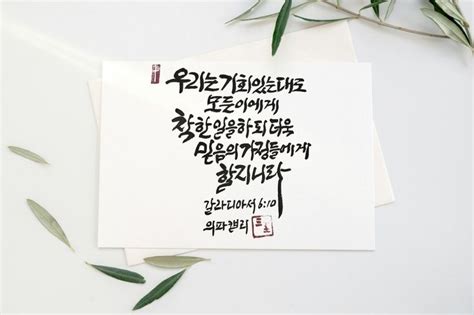 우리는 기회있는대로
모든이에게
착한 일을하되 더욱
믿음의 가정들에게
할지니라
갈라디아서 6:10
의파캘리